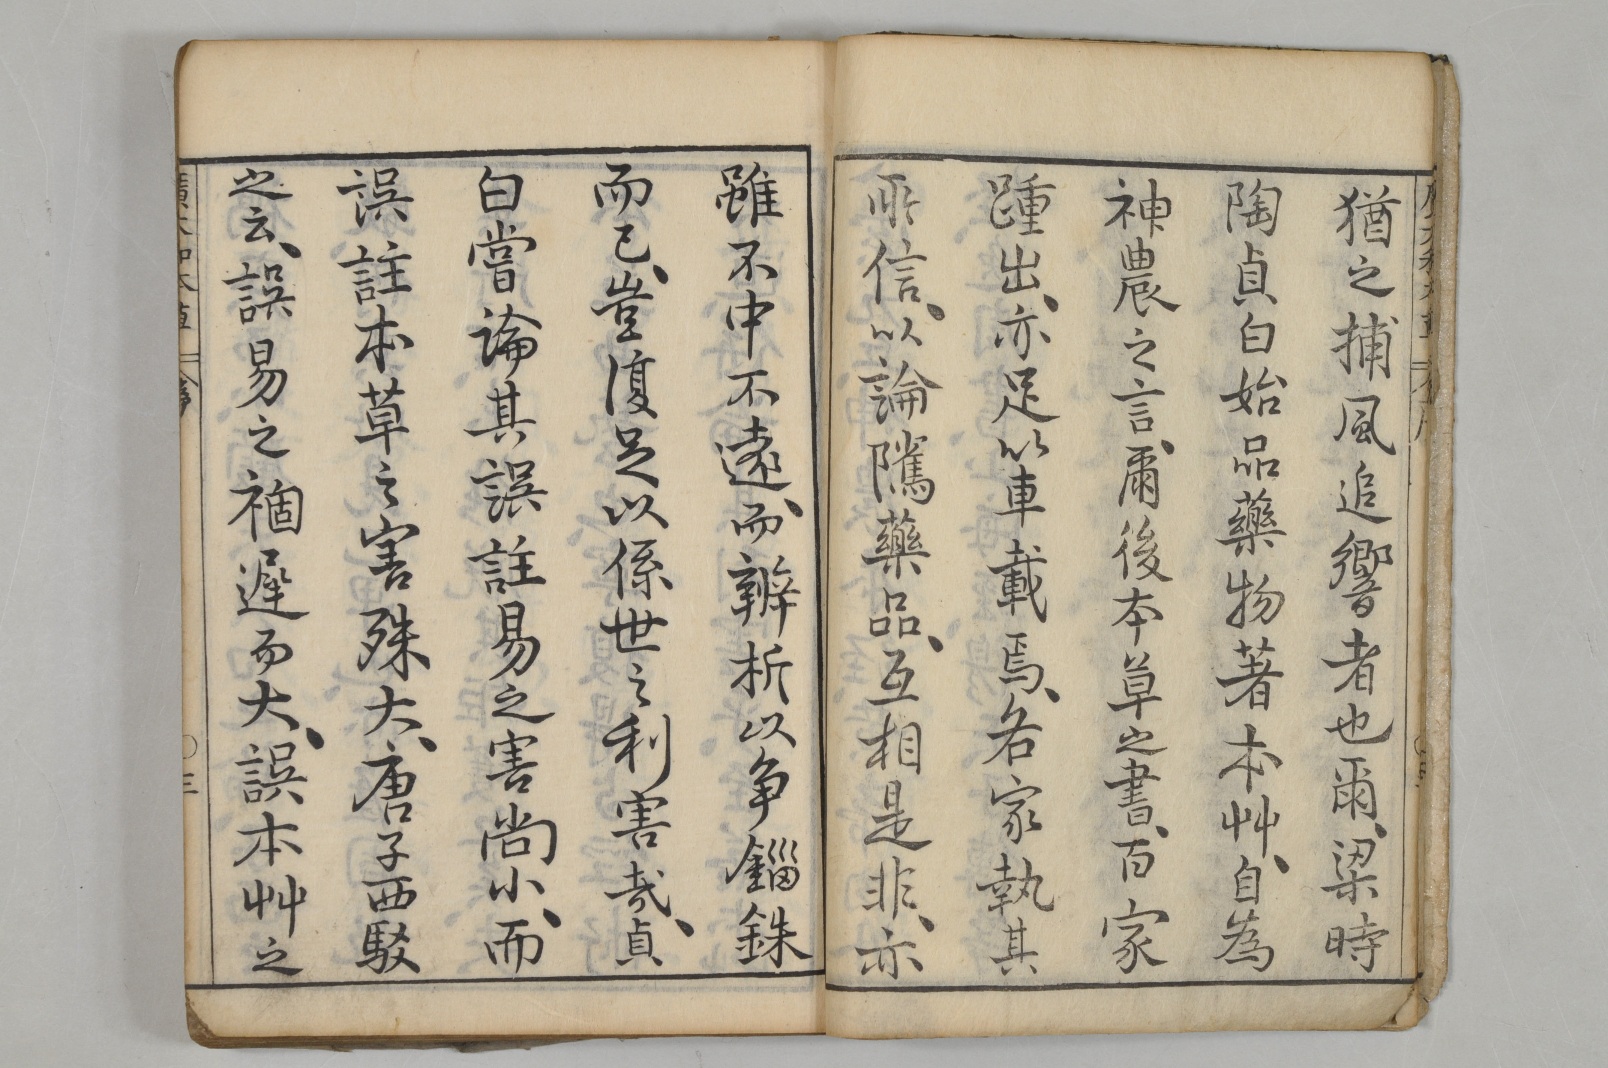 猶之捕風追響者也爾、梁時
陶貞白始品藥物著本艸、自為
神農之言爾後本草之書、百家
踵出、亦足以車載焉、各家執其
所信、以論隲藥品、互相是非、亦
雖不中不遠、而辨析以争錙銖
而已、豈復足以係世之利害哉、貞
白嘗論其誤註易之害尚小、而
誤註本草之害殊大、唐子西駁
之云、誤易之禍遲而大、誤本艸之
廣大和本草 序 〇三